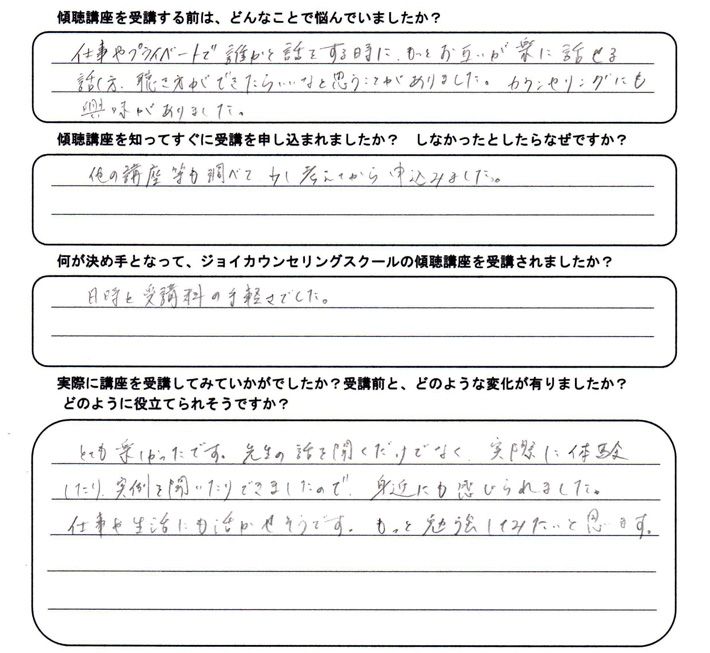 傾聴講座を受講する前は、どんなことで悩んでいましたか？
仕事やプライベートで誰かと話をする時に、もっとお互いが楽に話せる
話し方、聴き方ができたらいいなと思うことがありました。カウンセリングにも
興味がありました。
傾聴講座を知ってすぐに受講を申し込まれましたか？　しなかったとしたらなぜですか？
他の講座等も調べて少し考えてから申込みました。
何が決め手となって、ジョイカウンセリングスクールの傾聴講座を受講されましたか？
日時と受講料の手軽さでした。
実際に講座を受講してみていかがでしたか？受講前と、どのような変化が有りましたか？
どのように役立てられそうですか？
とても楽しかったです。先生の話を聞くだけでなく、実際に体験
したり、実例を聞いたりできましたので、身近にも感じられました。
仕事や生活にも活かせそうです。もっと勉強してみたいと思います。